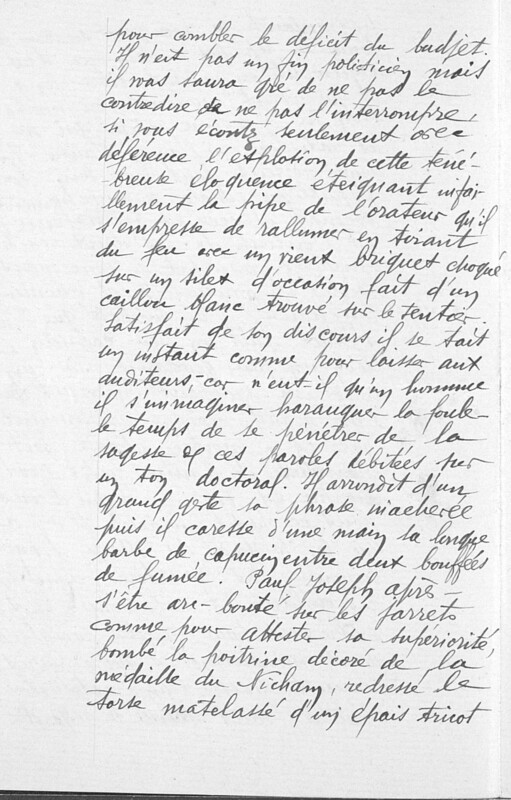 pour combler le déficit du budjet.
Il n'est pas un fin politicien mais
il vous saura gré de ne pas le
contredire de ne pas l'interrompre,
si vous écoutez seulement avec
déférence l'explosion de cette téné-
breuse éloquence éteignant infai-
llement la pipe de l'orateur qu'il
s'empresse de rallumer en tirant
du feu avec un vieux briquet choqué
sur un silex d'occasion fait d'un
caillou blanc trouvé sur le sentier.
Satisfait de son discours il se tait
un instant comme pour laisser aux
auditeurs, - car n'eut-il qu'un homme
il s'immaginer haranguer la foule -
le temps de se pénétrer de la
sagesse de ces paroles débitées sur
un ton doctoral. Il arrondit d'un
grand geste sa phrase inachevée
puis il caresse d'une main sa longue
barbe de capucin entre deux bouffées
de fumée. Paul Joseph après -
s'être arc-bouté sur les jarrets
comme pour attester sa supériorité,
bombé la poitrine décoré de la
médaille du Nicham, redresse le
torse matelassé d'un épais tricot